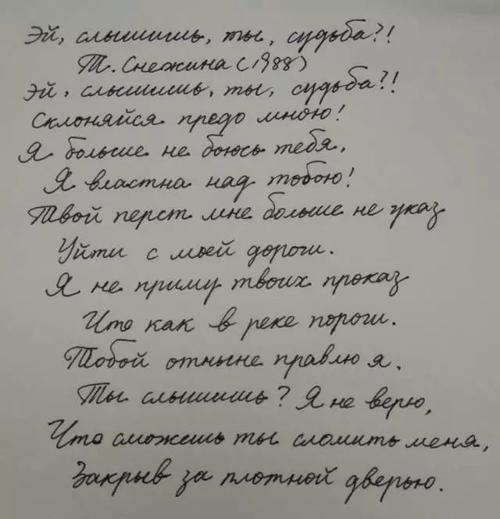 Эй, слышишь, ты, судьба?!
Т. Снежина (1988)
Эй, слышишь, ты, судьба?!
Склоняйся предо мною!
Я больше не боюсь тебя,
Я властна над тобою!
Твой перст мне больше не указ
Уйти с моей дороги.
Я не приму твоих проказ
Что как в реке пороги.
Тобой отныне правлю я.
Ты слышишь? Я не верю,
Что сможешь ты сломить меня,
Закрыв за плотной дверью.